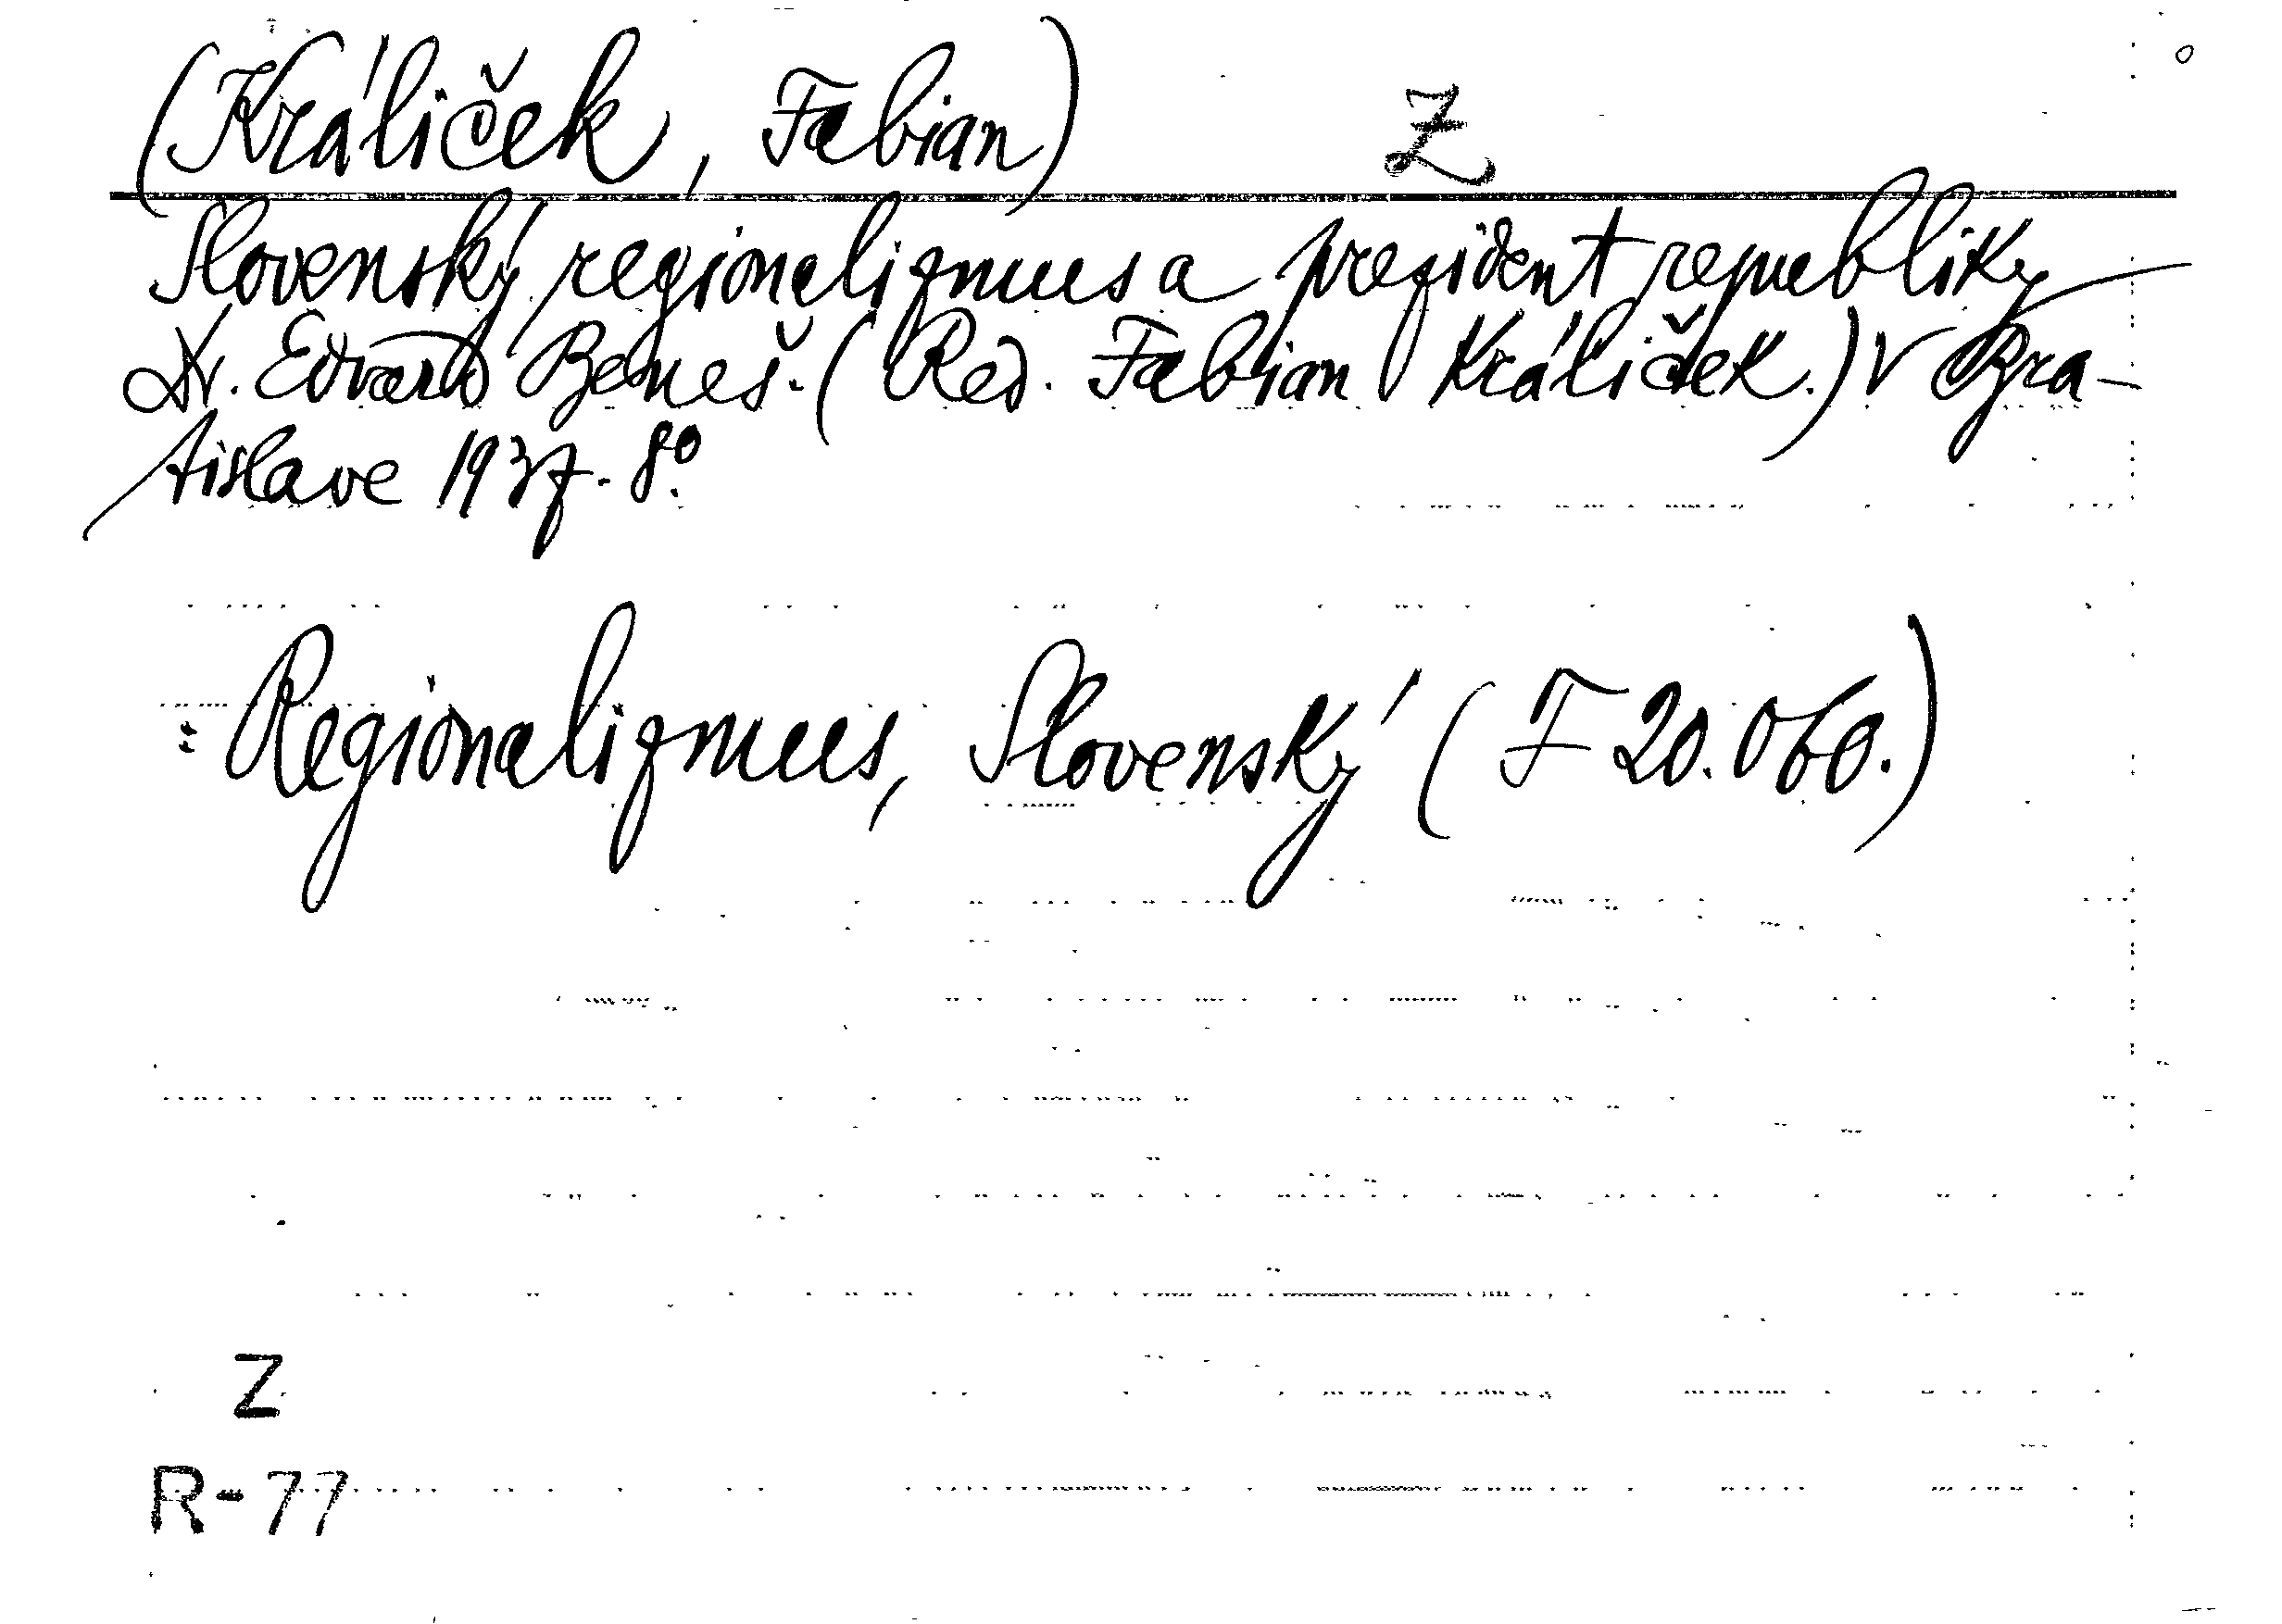 (Králiček, Fabian) Z
Slovenský regionalizmus a prezident republiky
Dr. Edvard Beneš. (Red. Fabian Králiček.) V Bra-
tislave 1937. 8°.
: Regionalizmus, Slovenský (F 20.060.)
Z
R-77